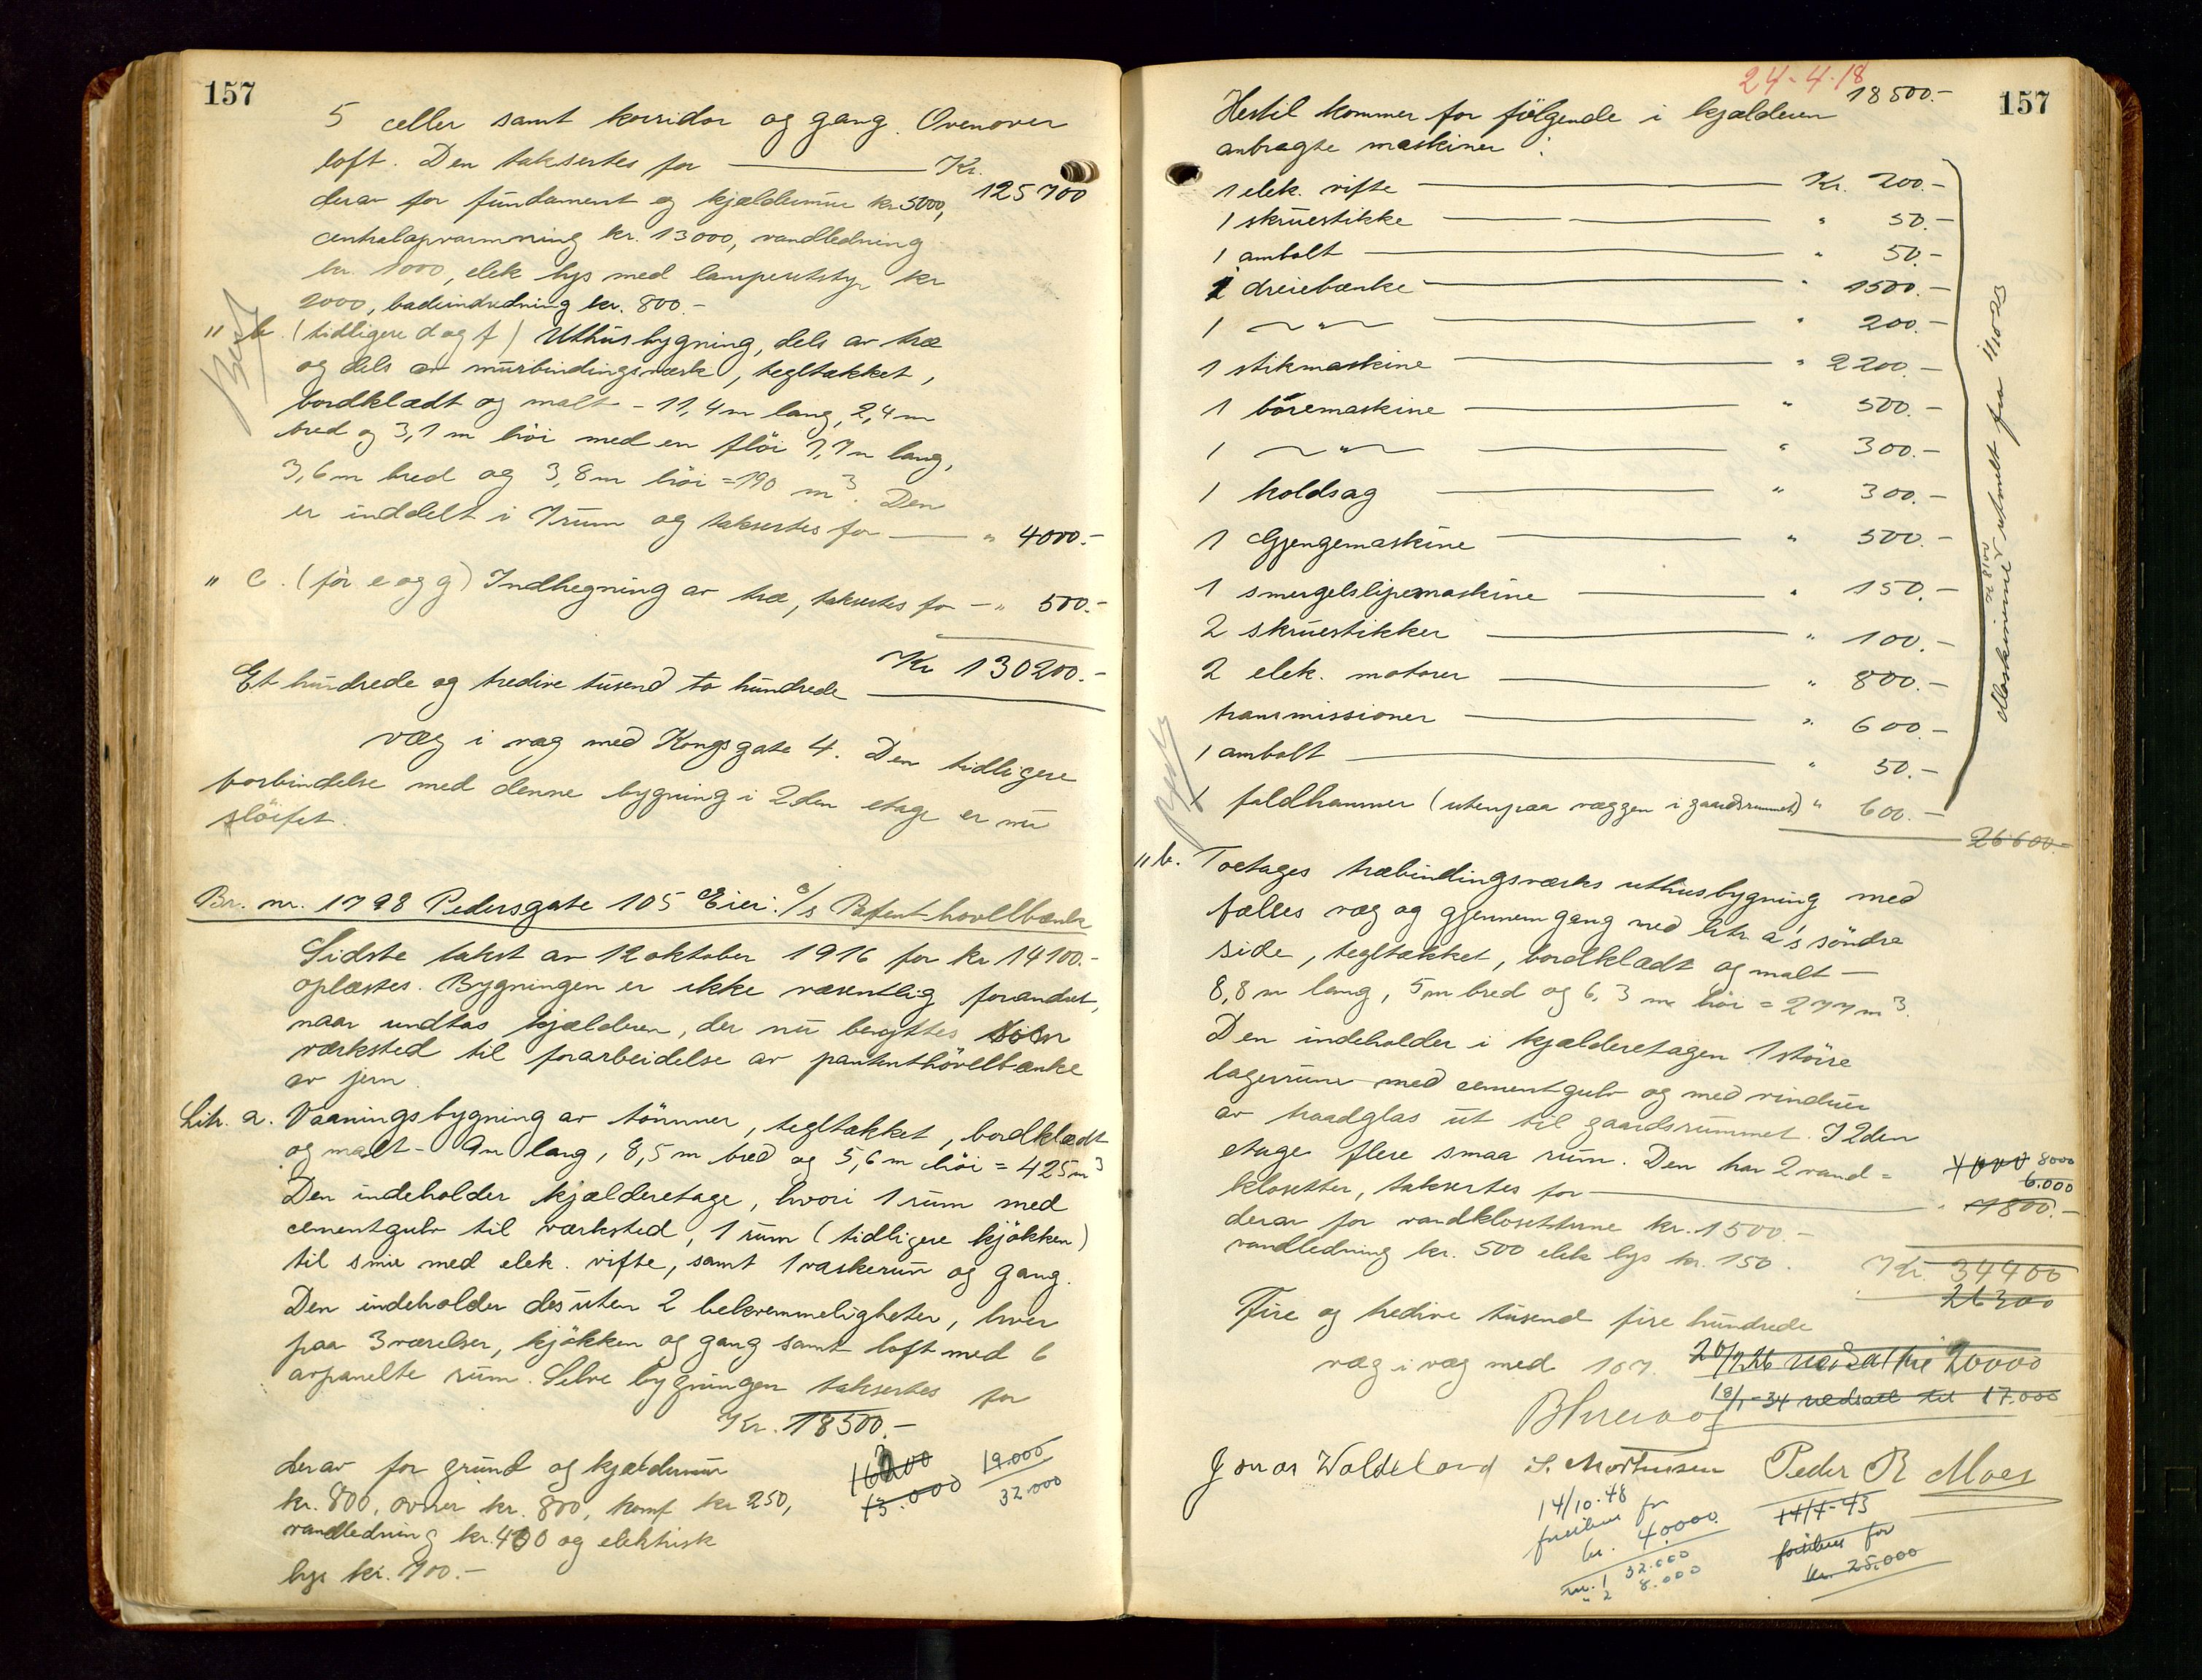 157
5 celler samt korridor og gang. Ovenover
loft. Den taksertes for — Kr.
125 700
derav for fundament og kjældermur kr 5000,
centralopvarmning kr. 13000, vandledning
kr. 1000, elek lys med lampeutstyr kr
2000, badeindredning kr. 800.-
" b. (tidligere d og f) Uthusbygning, dels av træ
og dels av murbindingsverk, tegltækket,
bordklædt og malt - 11,4 m lang, 2,4 m
bred og 3,1 m höi med en flöi 7,7 m lang,
3,6 m bred og 3,8 m höi = 190 m³. Den
er inddelt i 7 rum og taksertes for — " 4000.-
" c. (för e og g) Indhegning av træ, taksertes for — " 500.-
Kr 130200.-
Et hundrede og tredive tusend to hundrede
væg i væg med Kongsgate 4. Den tidligere
forbindelse med denne bygning i 2den etage er nu
slöifet.
Br. nr. 1798 Pedersgate 105 Eier: A/s Patenthövelbænk
Sidste takst av 12 oktober 1916 for kr 14100.-
oplæstes. Bygningen er ikke væsentlig forandret,
naar undtas kjælderen, der nu benyttes som
værksted til forarbeidelse av pantenthövelbænke
av jern.
Litr. a. Vaaningsbygning av tömmer, tegltækket, bordklædt
og malt - 9 m lang, 8,5 m bred og 5,6 m höi = 425 m³
Den indeholder kjælderetage, hvori 1 rum med
cementgulv til værksted, 1 rum (tidligere kjökken)
til smie med elek. vifte, samt 1 vaskerum og gang.
Den indeholder desuten 2 bekvemmeligheter, hver
paa 3 værelser, kjökken og gang samt loft med 6
avpanelte rum. Selve bygningen taksertes for
Kr. 18500.-
derav for grund og kjældermur
kr. 800, ovner kr. 800, komf kr 250,
vandledning kr. 400 og elektrisk
lys kr. 700.-
13.000
19.000
32.000
24-4-18
157
Hertil kommer for fölgende i kjælderen 18500.-
anbragte maskiner:
1 elek. vifte — Kr. 200.-
1 skruestikke — " 50.-
1 ambolt — " 50.-
1 dreiebænke — " 1500.-
1 — " — " 200.-
1 stikmaskine — " 2200.-
1 boremaskine — " 500.-
1 — " — " 300.-
1 koldsag — " 300.-
1 Gjengemaskine — " 500.-
1 smergelslipemaskine — " 150.-
2 skruestikker — " 100.-
2 elek. motorer — " 800.-
transmissioner — " 600.-
1 ambolt — " 50.-
1 faldhammer (utenpaa væggen i gaardsrummet) " 600.-
26600.-
Maskinerne kr 8100 utmeldt fra 11/10 23
" b. Toetages træbindingsværks uthusbygning med
fælles væg og gjennemgang med litr. a's söndre
side, tegltækket, bordklædt og malt —
8,8 m lang, 5 m bred og 6,3 m höi = 277 m³.
Den indeholder i kjælderetagen 1 större
lagerrum med cementgulv og med vinduer
av traadglas ut til gaardsrummet. I 2den
etage flere smaa rum. Den har 2 vand=
klosetter, taksertes for — " 7800.-
8000
6.000
derav for vandklosetterne kr. 1500.-
vandledning kr. 500 elek lys kr. 150.
Kr. 34400
26300
Fire og tredive tusend fire hundrede
væg i væg med 107.
20/7 26 nedsat til 20000
18/1-34 nedsatt til 17.000
Jonas Woldeland S. Mortensen Peder R Moes
14/10-48
forsikres for
kr. 40000.
nr. 1 32.000
" 2 8.000
14/4-43
forsikres for
kr. 25.000